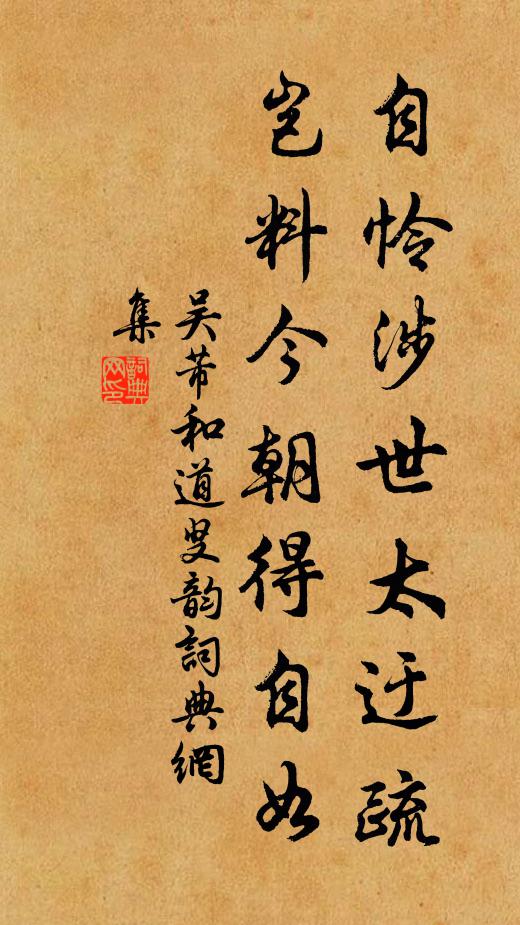 自怜涉世太迂疏
岂料今朝得自如
吴芾和道叟韵詞典網
集
詞典网印